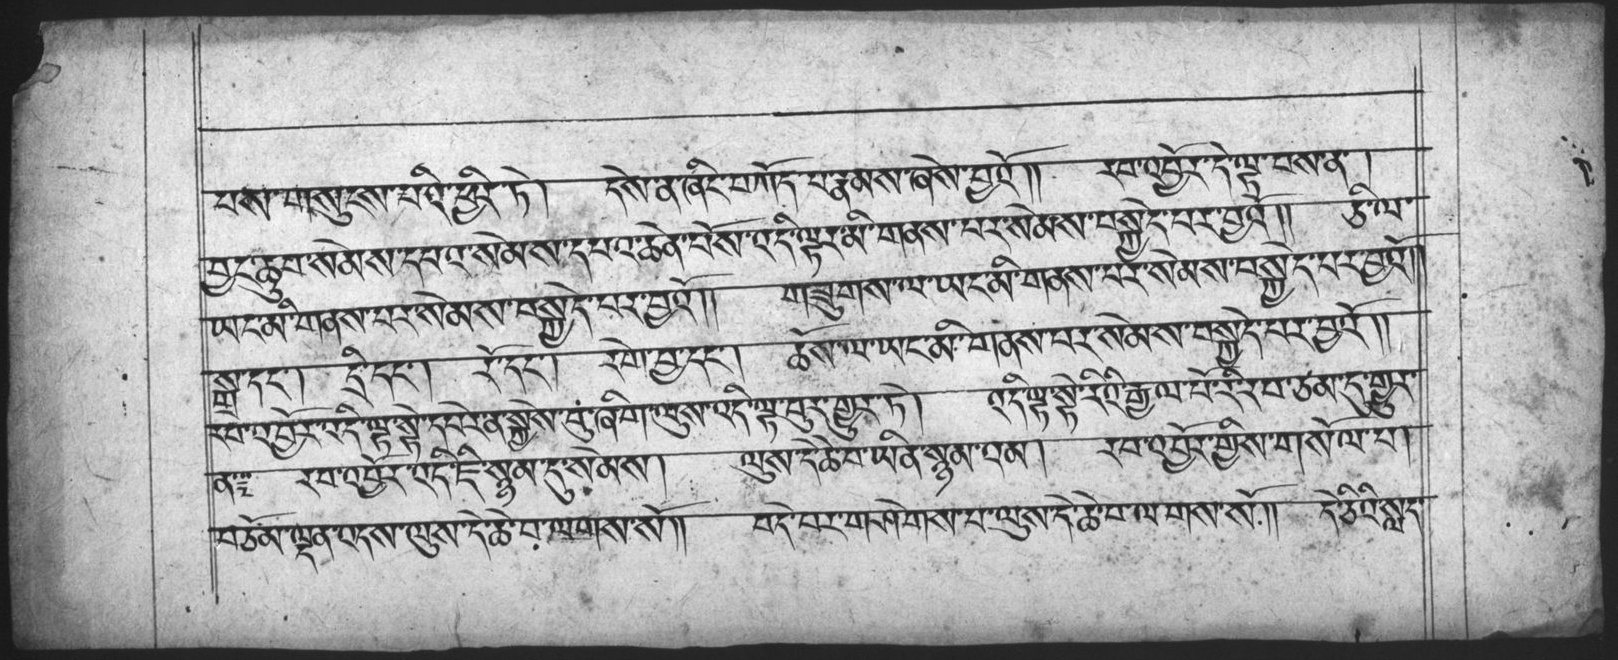 པས་གསུངས་པའི་ཕྱིར་ཏེ། དེས་ན་ཞིང་བཀོད་པ་རྣམས་ཞེས་བྱའོ།། རབ་འབྱོར་དེ་ལྟ་བས་ན་།
བྱང་ཆུབ་སེམས་དཔའ་སེམས་དཔའ་ཆེན་པོས་འདི་ལྟར་མི་གནས་པར་སེམས་བསྐྱེད་པར་བྱའོ།། ཅི་ལ་
ཡང་མི་གནས་པར་སེམས་བསྐྱེད་པར་བྱའོ།། གཟུགས་ལ་ཡང་མི་གནས་པར་སེམས་བསྐྱེད་པར་བྱའོ།།
སྒྲ་དང་། དྲི་དང་། རོ་དང་། རེག་བྱ་དང་། ཆོས་ལ་ཡང་མི་གནས་པར་སེམས་བསྐྱེད་པར་བྱའོ།།
རབ་འབྱོར་འདི་ལྟ་སྟེ་དཔེར་ན་སྐྱེས་བུ་ཞིག་ལུས་འདི་ལྟ་བུར་གྱུར་ཏེ། འདི་ལྟ་སྟེ་རིའི་རྒྱལ་པོ་རི་རབ་ཙམ་དུ་གྱུར་
ན་ རབ་འབྱོར་འདི་ཇི་སྙམ་དུ་སེམས། ལུས་དེ་ཆེ་བ་ཡིན་སྙམ་འམ། རབ་འབྱོར་གྱིས་གསོལ་པ།
བཅོམ་ལྡན་འདས་ལུས་དེ་ཆེ་བ་ལགས་སོ།། བདེ་བར་གཤེགས་པ་ལུས་དེ་ཆེ་བ་ལགས་སོ།། དེ་ཅིའི་སླད་